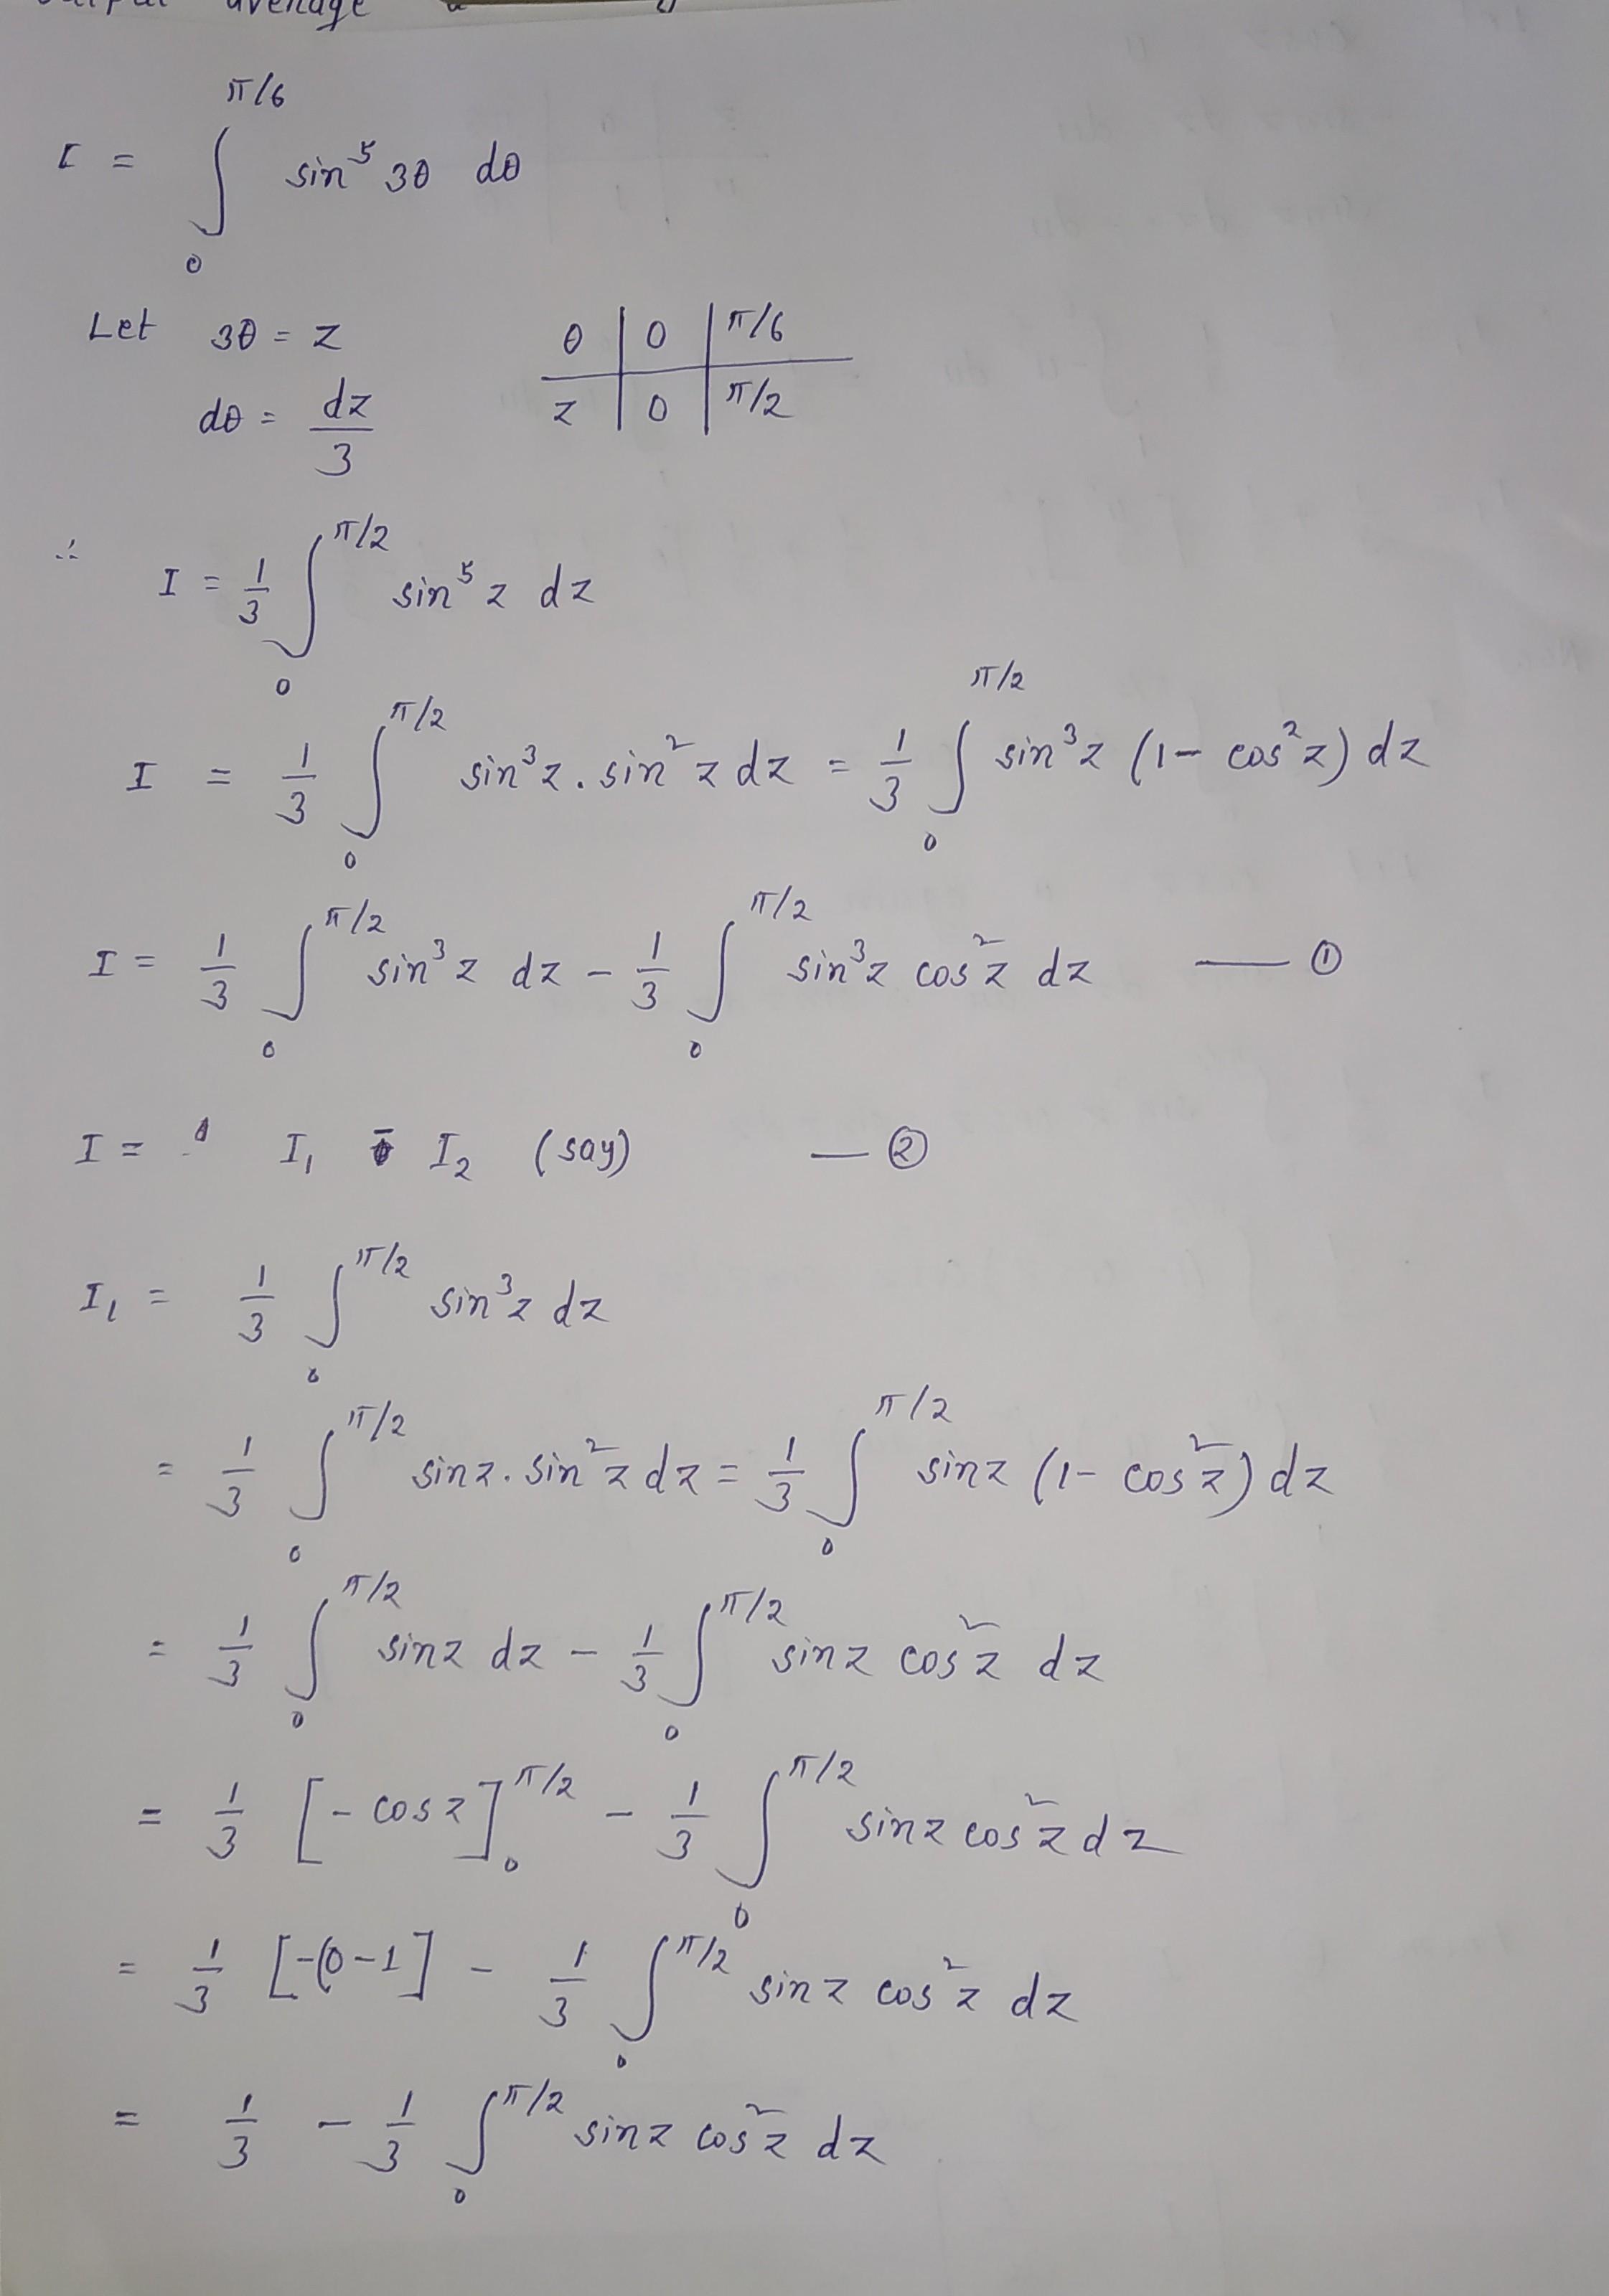 average
π/6
I = ∫ sin⁵ 3θ dθ
0
Let 3θ = z θ | 0 | π/6
dθ = dz/3 z | 0 | π/2
∴ I = 1/3 ∫₀^(π/2) sin⁵ z dz
I = 1/3 ∫₀^(π/2) sin³z . sin²z dz = 1/3 ∫₀^(π/2) sin³z (1 - cos²z) dz
I = 1/3 ∫₀^(π/2) sin³z dz - 1/3 ∫₀^(π/2) sin³z cos²z dz —— ①
I = I₁ - I₂ (say) — ②
I₁ = 1/3 ∫₀^(π/2) sin³z dz
= 1/3 ∫₀^(π/2) sinz . sin²z dz = 1/3 ∫₀^(π/2) sinz (1 - cos²z) dz
= 1/3 ∫₀^(π/2) sinz dz - 1/3 ∫₀^(π/2) sinz cos²z dz
= 1/3 [- cosz]₀^(π/2) - 1/3 ∫₀^(π/2) sinz cos²z dz
= 1/3 [-(0-1] - 1/3 ∫₀^(π/2) sinz cos²z dz
= 1/3 - 1/3 ∫₀^(π/2) sinz cos²z dz